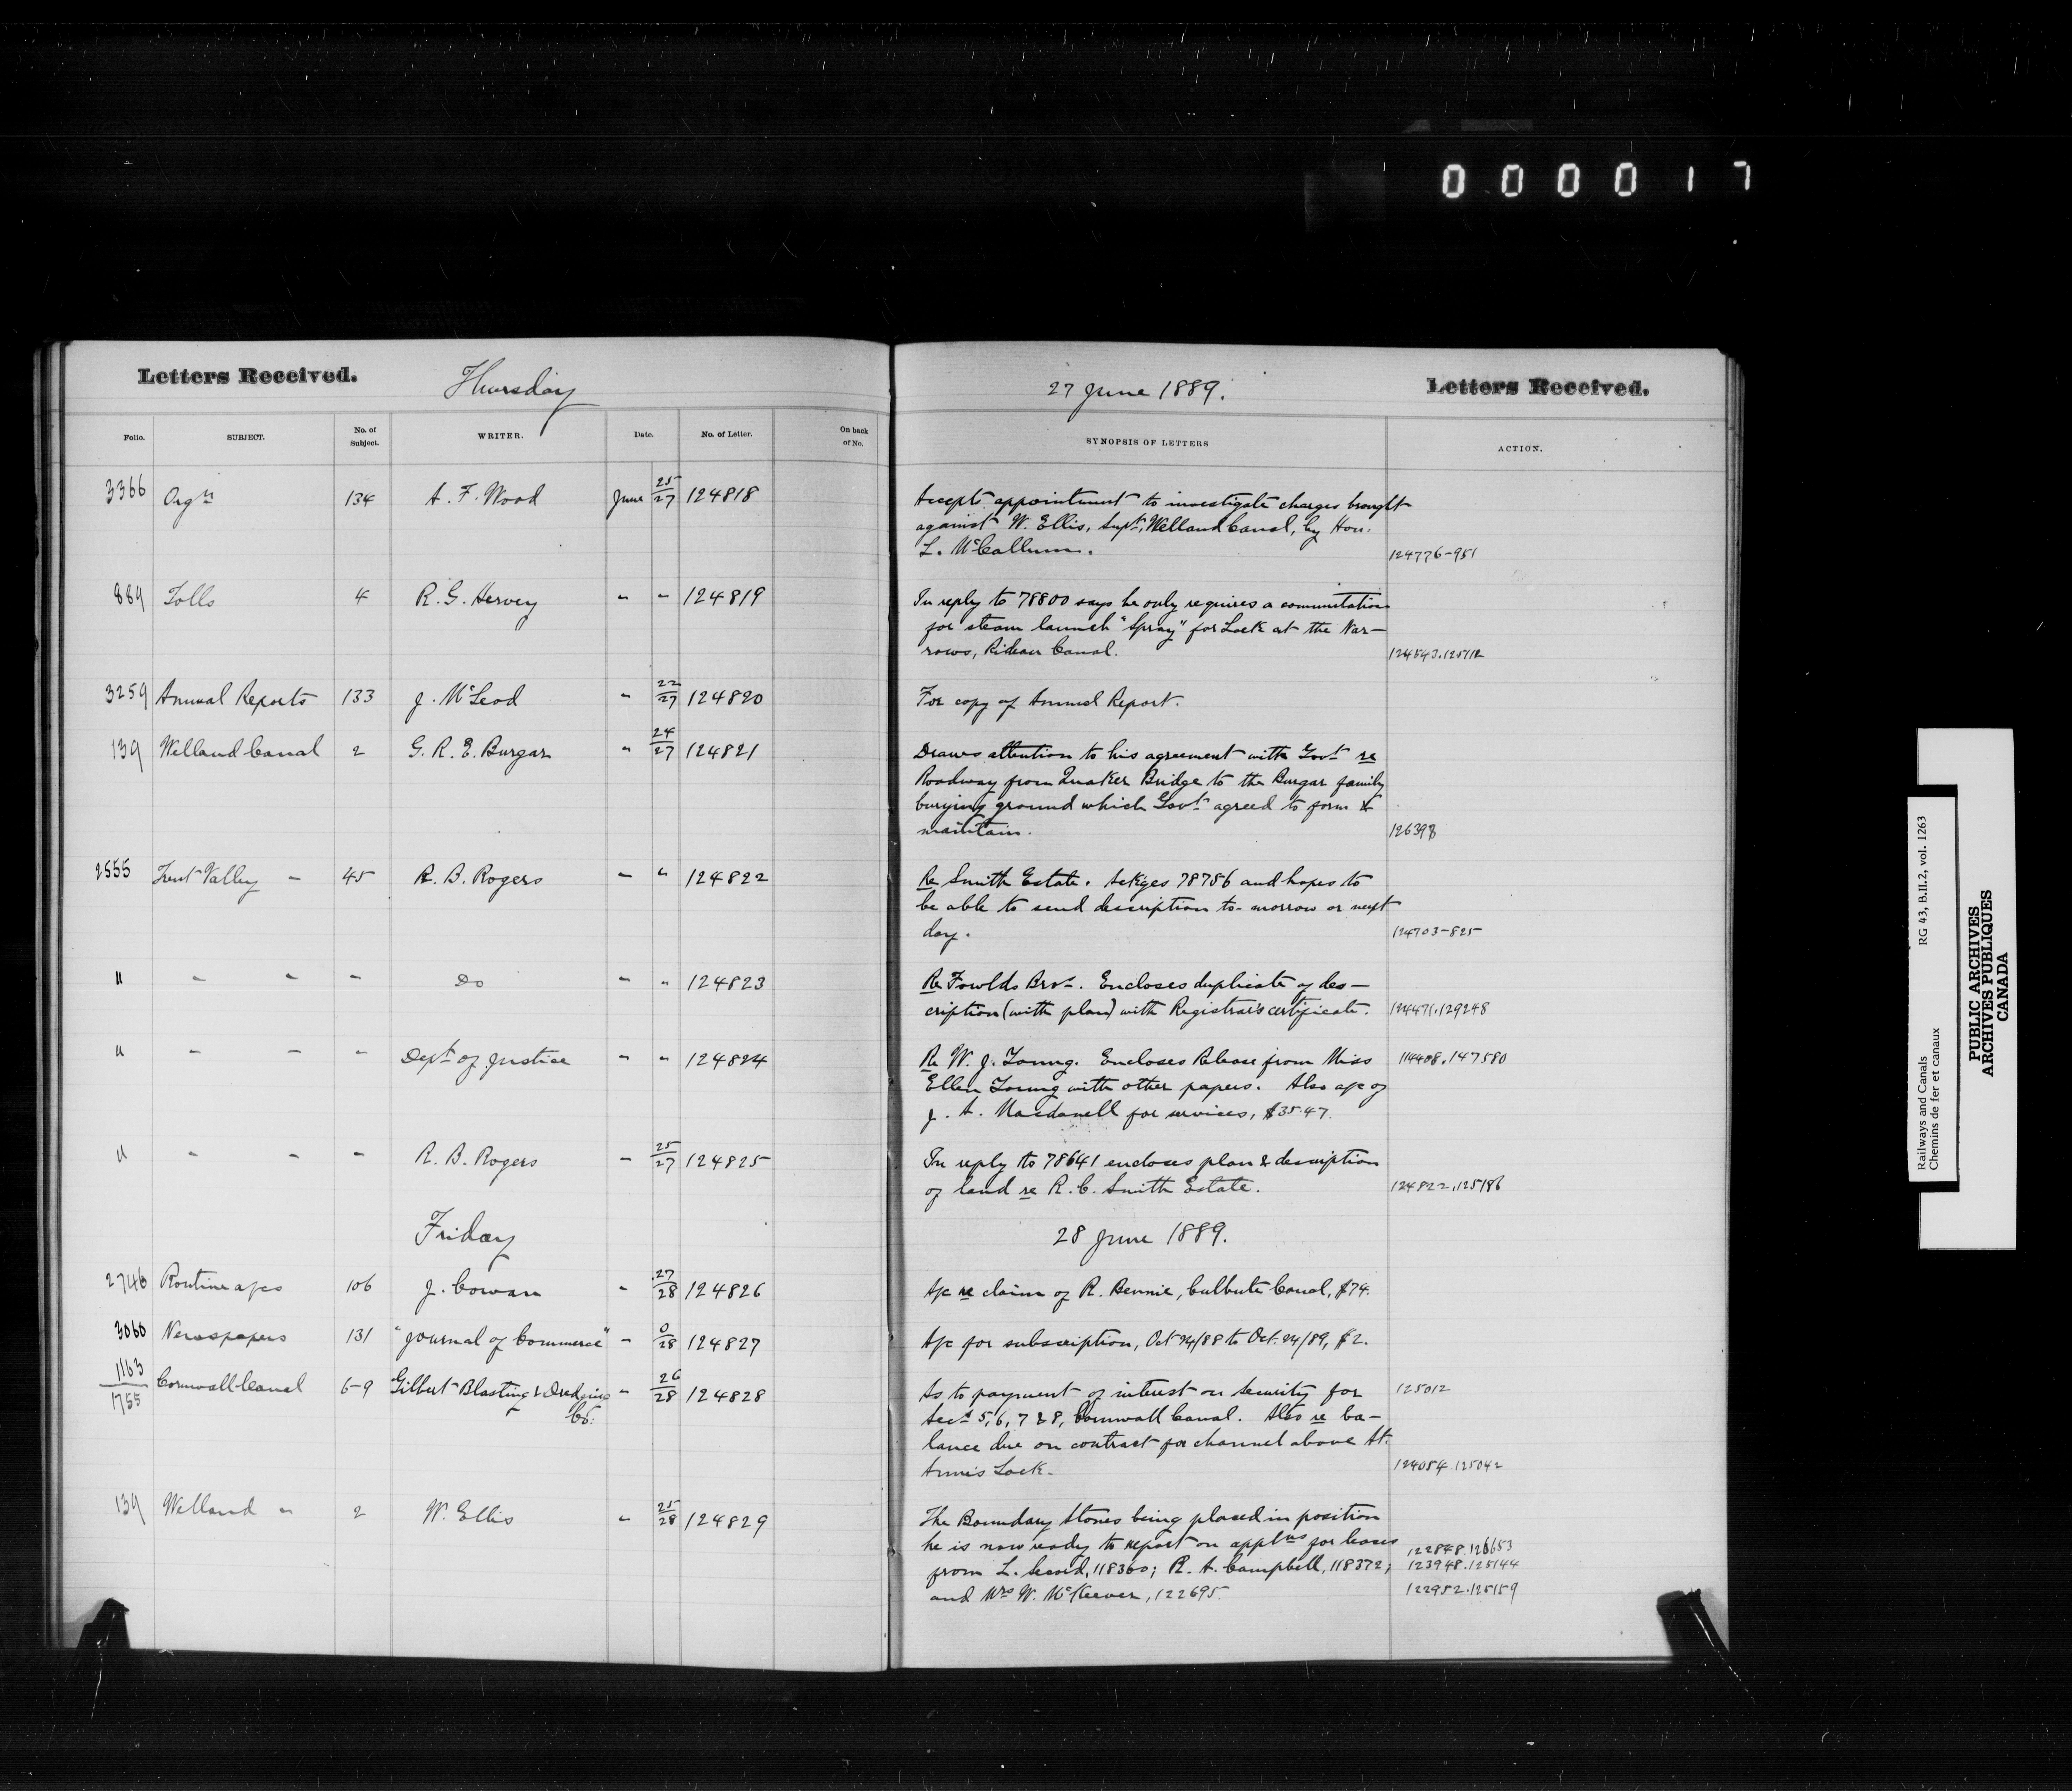 000017
Letters Received.
Thursday
27 June 1889.
Letters Received.
Folio. SUBJECT. No. of Subject. WRITER. Date. No. of Letter. On back of No. SYNOPSIS OF LETTERS ACTION.
3366 Orgn 134 A. F. Wood June 25/27 124818
Accepts appointment to investigate charges brought
against W. Ellis, Supt. Welland Canal, by Hon.
L. McCallum. 124776-951
889 Tolls 4 R. G. Hervey " " 124819
In reply to 78800 says he only requires a commutation
for steam launch "Spray" for Lock at the Nar-
rows, Rideau Canal.
3259 Annual Reports 133 J. McLeod " 22/27 124820
For copy of Annual Report.
139 Welland Canal 2 G. R. E. Burgar " 24/27 124821
Draws attention to his agreement with Govt re
Roadway from Quaker Bridge to the Burgar family
burying ground which Govt agreed to form &
maintain. 126398
2555 Trent Valley " 45 R. B. Rogers " " 124822
Re Smith Estate. Ackges 78756 and hopes to
be able to send description to-morrow or next
day. 124703-825
" " " " Do " " 124823
Re Fowlds Bros. Encloses duplicate of des-
cription (with plan) with Registrar's certificate. 124471.129248
" " " " Dept of Justice " " 124824
Re W. J. Young. Encloses Release from Miss 114408.147580
Ellen Young with other papers. Also a/c of
J. A. Macdonell for services, $35.47.
" " " " R. B. Rogers " 25/27 124825
In reply to 78641 encloses plan & description
of land re R. C. Smith Estate. 124822.125186
Friday
28 June 1889.
2746 Routine a/cs 106 J. Cowan " 27/28 124826
A/c re claim of R. Bennie, Culbute Canal, $74.
3060 Newspapers 131 "Journal of Commerce" " 0/28 124827
A/c for subscription, Oct 24/88 to Oct. 24/89, $2.
1163/1755 Cornwall Canal 6-9 Gilbert Blasting & Dredging Co. " 26/28 124828
As to payment of interest on security for 125012
Secs 5, 6, 7 & 8, Cornwall Canal. Also re ba-
lance due on contract for channel above St.
Anne's Lock. 124054.125042
139 Welland " 2 W. Ellis " 25/28 124829
The Boundary Stones being placed in position
he is now ready to report on appltns for leases
from L. Secord, 118360; R. A. Campbell, 118372; 123948.125144
and Mrs W. McKeever, 122695. 122952.125159
Railways and Canals RG 43, B.II.2, vol. 1263
Chemins de fer et canaux
PUBLIC ARCHIVES
ARCHIVES PUBLIQUES
CANADA